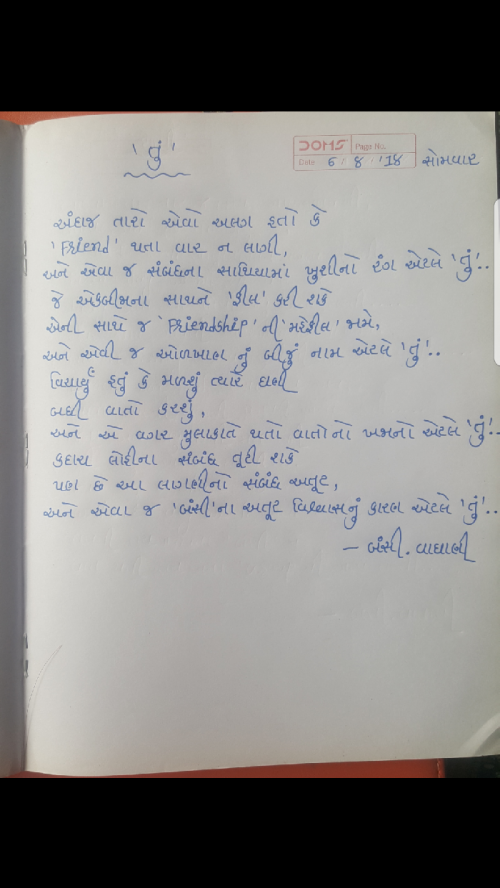 'તું'
DOMS Page No.
Date 6 / 8 / '18 સોમવાર
અંદાજ તારો એવો અલગ હતો કે
'Friend' થતા વાર ન લાગી,
અને એવા જ સંબંધના સાથિયામાં ખુશીનો રંગ એટલે 'તું'..
જે એકબીજાના સાથને 'ફીલ' કરી શકે
એની સાથે જ 'Friendship' ની 'મહેફીલ' જામે,
અને એવી જ ઓળખાણ નું બીજું નામ એટલે 'તું'..
વિચાર્યું હતું કે મળશું ત્યારે ઘણી
બધી વાતો કરશું,
અને એ વગર મુલાકાતે થતી વાતોનો ખજાનો એટલે 'તું'..
કદાચ લોહીના સંબંધ તૂટી શકે
પણ છે આ લાગણીનો સંબંધ અતૂટ,
અને એવા જ 'બંસી'ના અતૂટ વિશ્વાસનું કારણ એટલે 'તું'..
– બંસી. વાઘાણી